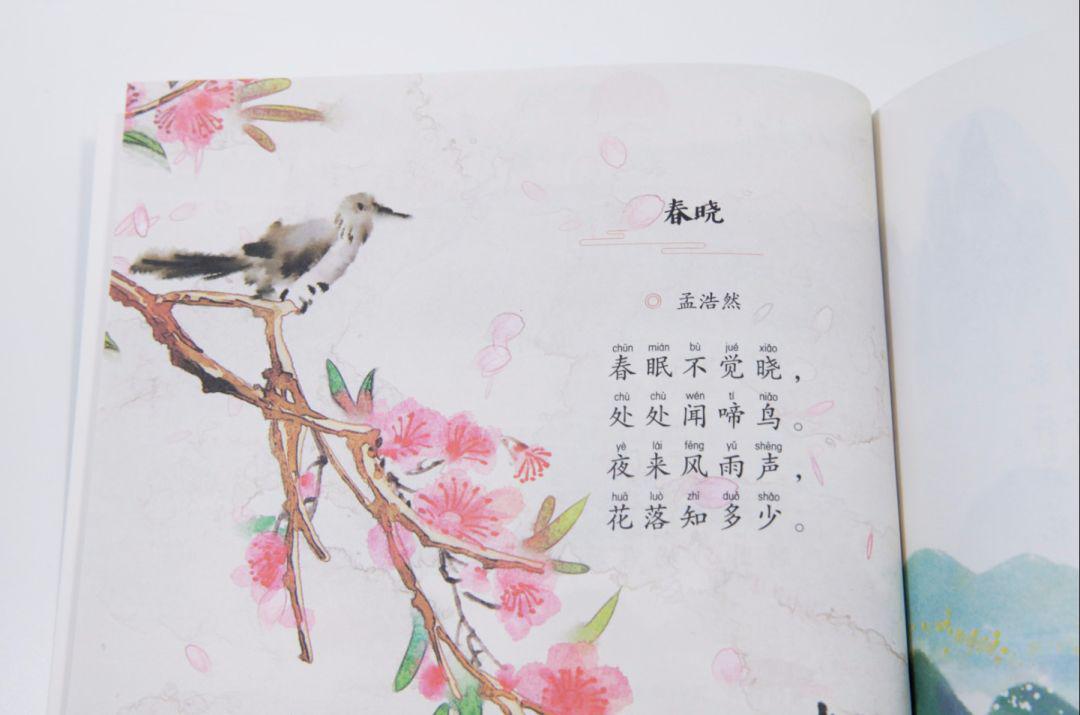 春晓
孟浩然
chūn mián bù jué xiǎo
春眠不觉晓，
chù chù wén tí niǎo
处处闻啼鸟。
yè lái fēng yǔ shēng
夜来风雨声，
huā luò zhī duō shǎo
花落知多少。